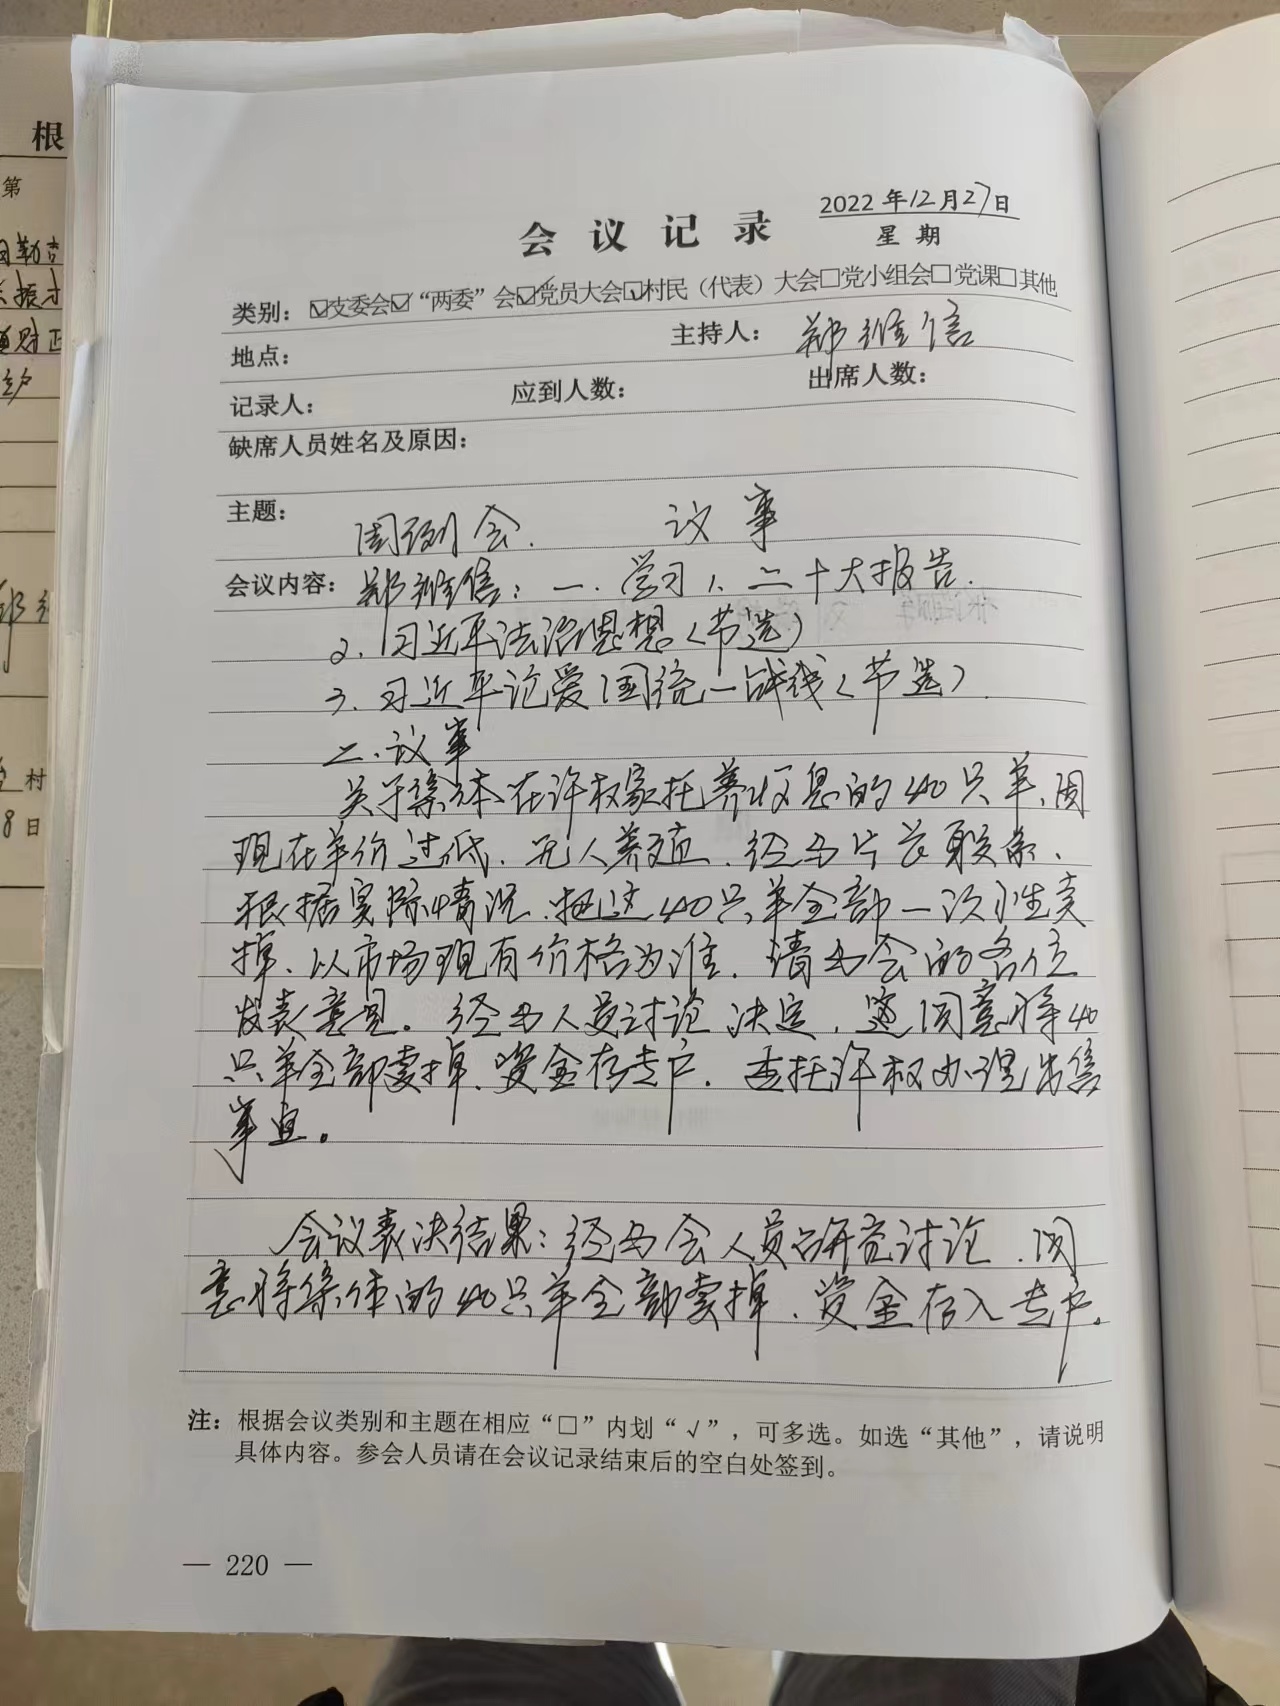 根
第
8日
村
会 议 记 录
2022 年12月27日
星 期
类别：☑支委会☑“两委”会☑党员大会☑村民（代表）大会□党小组会□党课□其他
地点： 主持人：郑维信
记录人： 应到人数： 出席人数：
缺席人员姓名及原因：
主题： 周例会. 议事
会议内容：郑维信：一.学习1、二十大报告.
2.习近平法治思想（节选）
3.习近平论爱国统一战线（节选）.
二.议事
关于集体在许权家托养收息的40只羊、因
现在羊价过低、无人养殖、经与片长联系、
根据实际情况、把这40只羊全部一次性卖
掉、以市场现有价格为准.请与会的各位
发表意见。经与人员讨论决定，同意将40
只羊全部卖掉、资金存专户.委托许权办理出售
事宜。
会议表决结果：经与会人员研究讨论、同
意将集体的40只羊全部卖掉、资金存入专户。
注：根据会议类别和主题在相应“□”内划“√”，可多选。如选“其他”，请说明
具体内容。参会人员请在会议记录结束后的空白处签到。
— 220 —